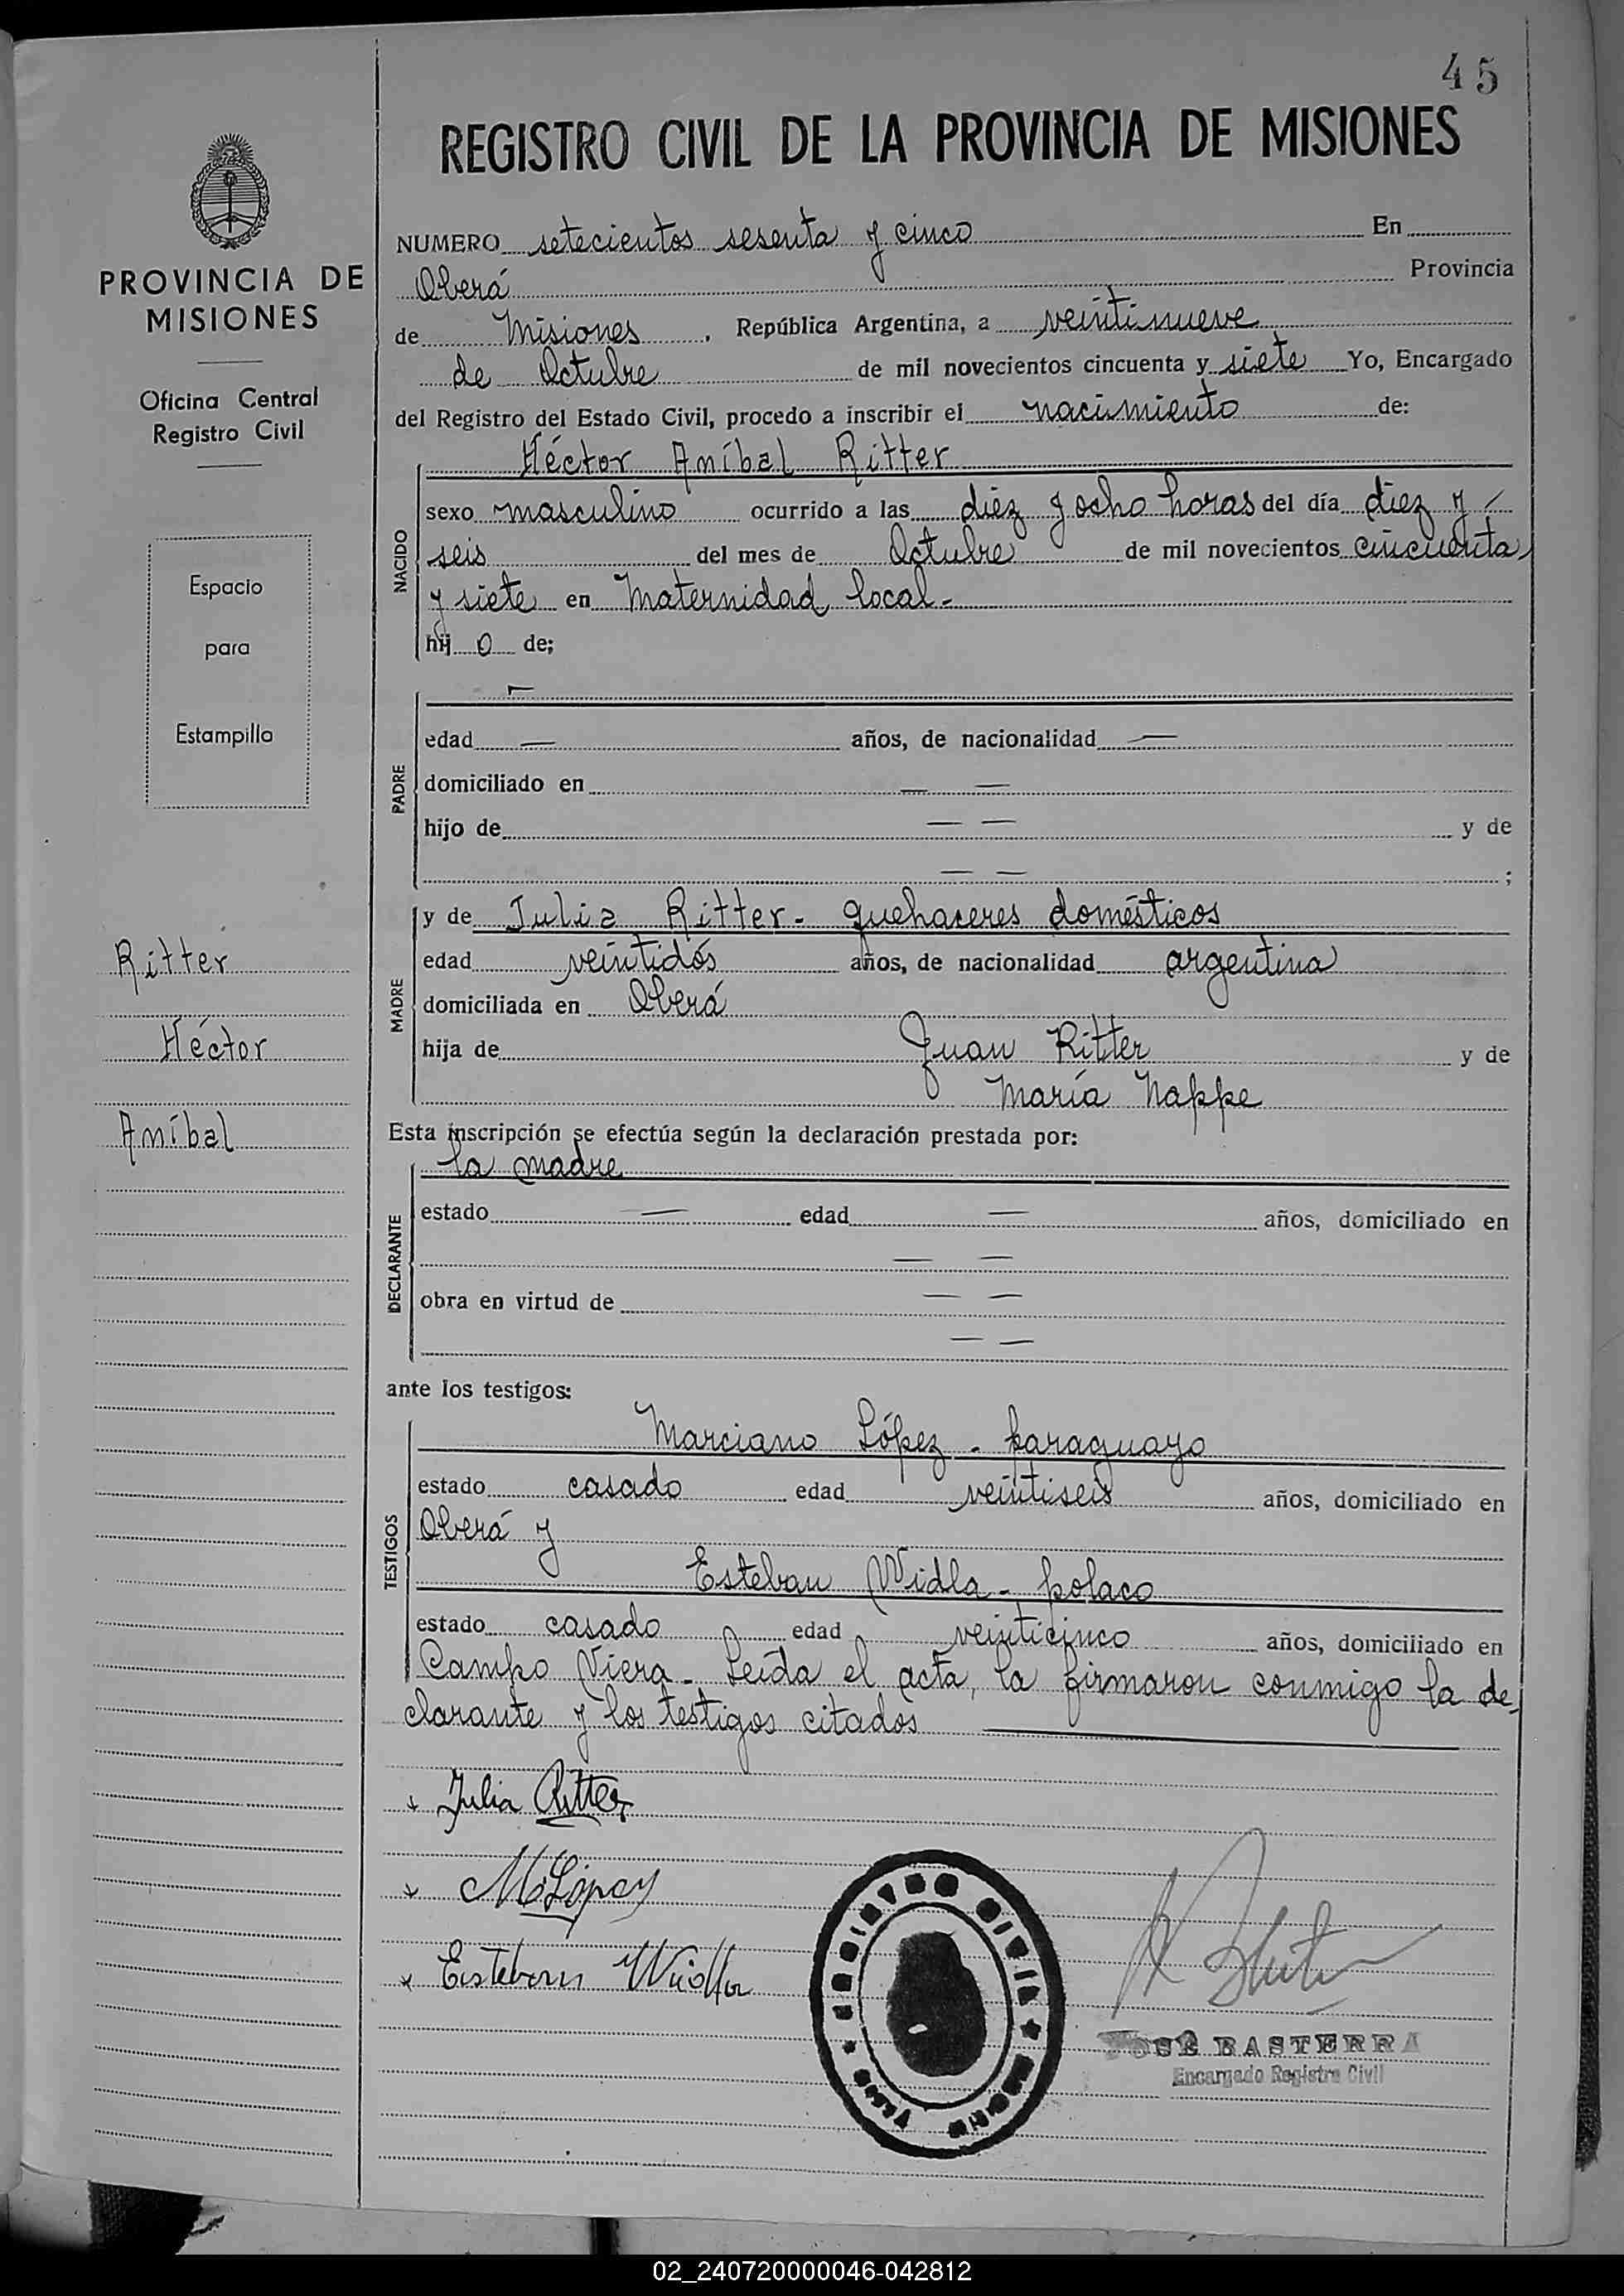 45
REGISTRO CIVIL DE LA PROVINCIA DE MISIONES
PROVINCIA DE
MISIONES
Oficina Central
Registro Civil
Espacio
para
Estampilla
Ritter
Héctor
Aníbal
NUMERO setecientos sesenta y cinco En
Oberá Provincia
de Misiones, República Argentina, a veintinueve
de Octubre de mil novecientos cincuenta y siete Yo, Encargado
del Registro del Estado Civil, procedo a inscribir el nacimiento de:
Héctor Aníbal Ritter
NACIDO
sexo masculino ocurrido a las diez y ocho horas del día diez y
seis del mes de Octubre de mil novecientos cincuenta
y siete en Maternidad local.-
hij o de;
PADRE
edad — años, de nacionalidad —
domiciliado en — —
hijo de — — y de
— — ;
MADRE
y de Julia Ritter - quehaceres domésticos
edad veintidós años, de nacionalidad argentina
domiciliada en Oberá
hija de Juan Ritter y de
María Nappe
Esta inscripción se efectúa según la declaración prestada por:
la madre
DECLARANTE
estado — edad — años, domiciliado en
— —
obra en virtud de — —
— —
ante los testigos:
TESTIGOS
Marciano López - paraguayo
estado casado edad veintiseis años, domiciliado en
Oberá y
Esteban Widla - polaco
estado casado edad veinticinco años, domiciliado en
Campo Viera - Leída el acta, la firmaron conmigo la de-
clarante y los testigos citados
Julia Ritter
M López
Esteban Widla
REGISTRO CIVIL
JOSÉ BASTERRA
Encargado Registro Civil
02_240720000046-042812